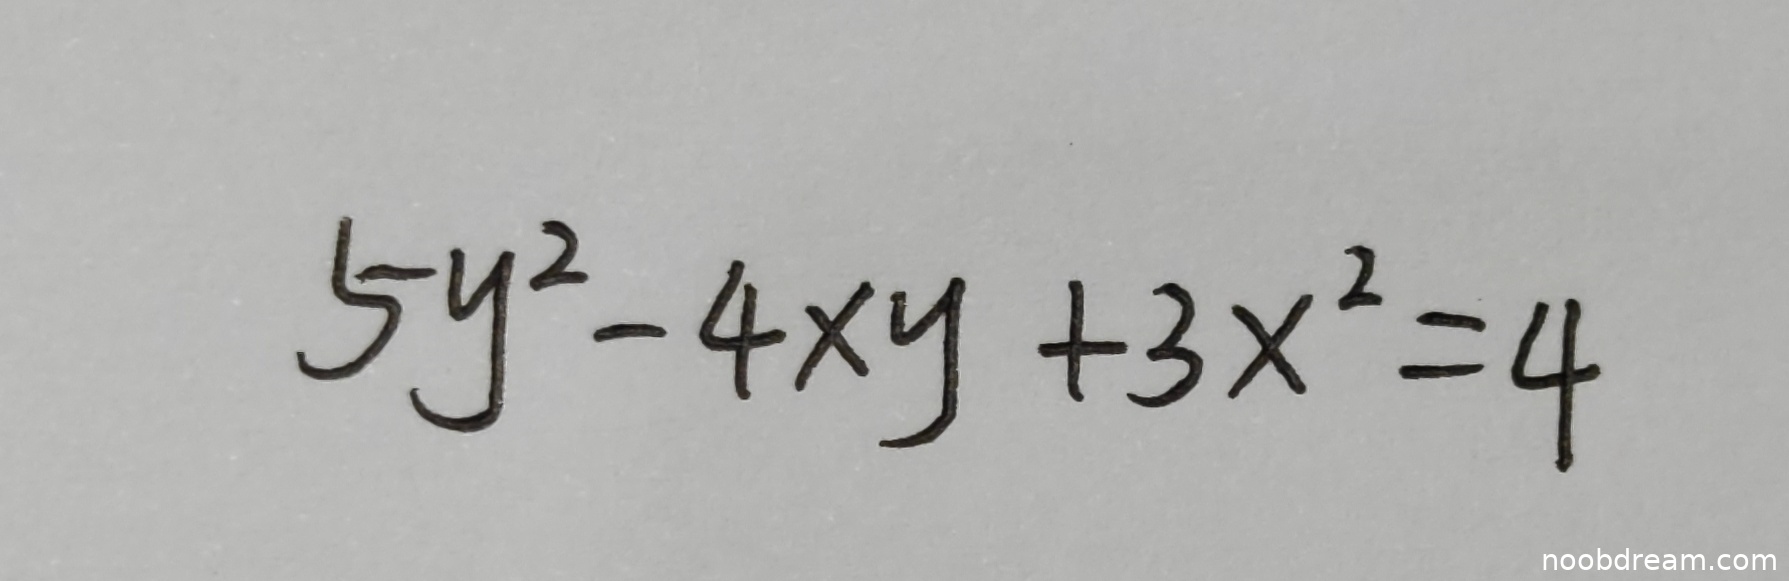 5y² - 4xy + 3x² = 4
noobdream.com